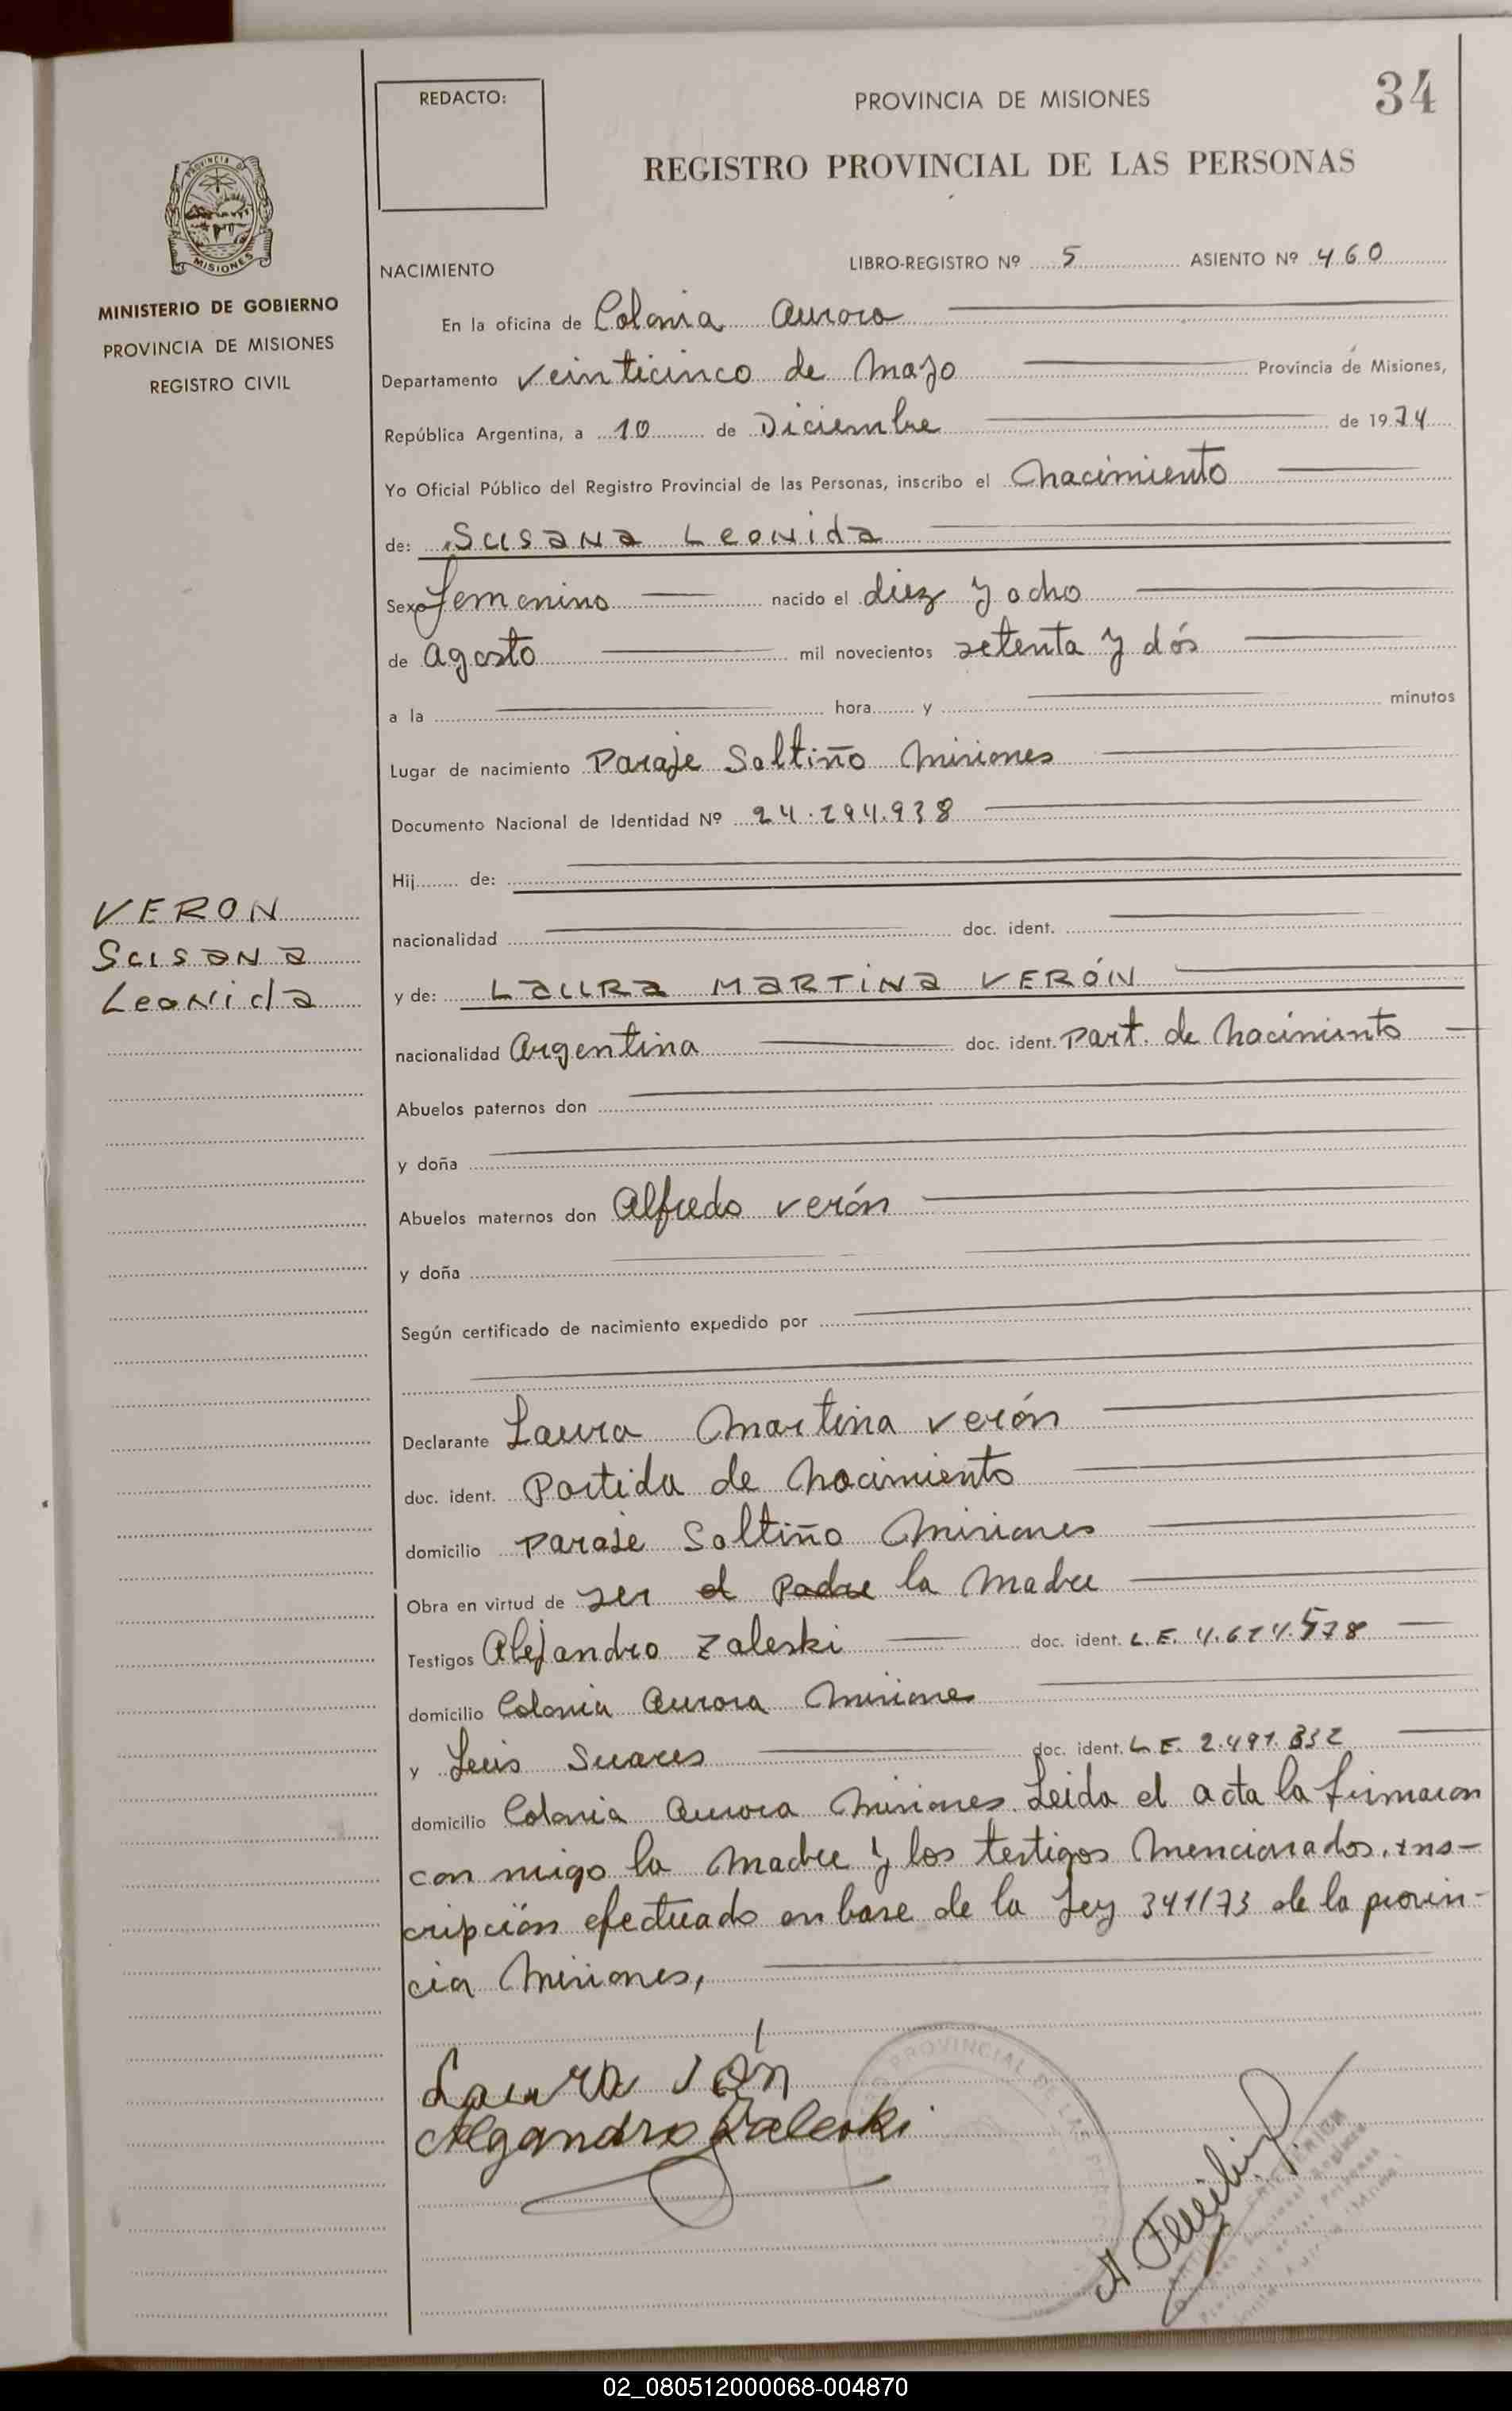 34
REDACTO:
PROVINCIA DE MISIONES
REGISTRO PROVINCIAL DE LAS PERSONAS
PROVINCIA DE
MISIONES
MINISTERIO DE GOBIERNO
PROVINCIA DE MISIONES
REGISTRO CIVIL
NACIMIENTO
LIBRO-REGISTRO Nº 5 ASIENTO Nº 460
En la oficina de Colonia Aurora
Departamento Veinticinco de Mayo Provincia de Misiones,
República Argentina, a 10 de Diciembre de 1974
Yo Oficial Público del Registro Provincial de las Personas, inscribo el Nacimiento
de: Susana Leonida
Sexo femenino nacido el diez y ocho
de agosto mil novecientos setenta y dós
a la hora y minutos
Lugar de nacimiento Paraje Saltiño Misiones
Documento Nacional de Identidad Nº 24.294.938
Hij de:
nacionalidad doc. ident.
VERON
Susana
Leonida
y de: LAURA MARTINA VERÓN
nacionalidad Argentina doc. ident. Part. de Naciminto
Abuelos paternos don
y doña
Abuelos maternos don Alfredo Verón
y doña
Según certificado de nacimiento expedido por
Declarante Laura Martina Verón
doc. ident. Partida de Nacimiento
domicilio Paraje Saltiño Misiones
Obra en virtud de ser el Padre la Madre
Testigos Alejandro Zaleski doc. ident. L.E. 4.624.578
domicilio Colonia Aurora Misiones
y Luis Suares doc. ident. L.E. 2.491.332
domicilio Colonia Aurora Misiones. Leida el acta la firmaron
con migo la Madre y los testigos Mencionados. Ins-
cripción efectuado en base de la Ley 341/73 de la provin-
cia Misiones,
Laura
Alejandro Zaleski
PROVINCIAL DE LAS
02_080512000068-004870